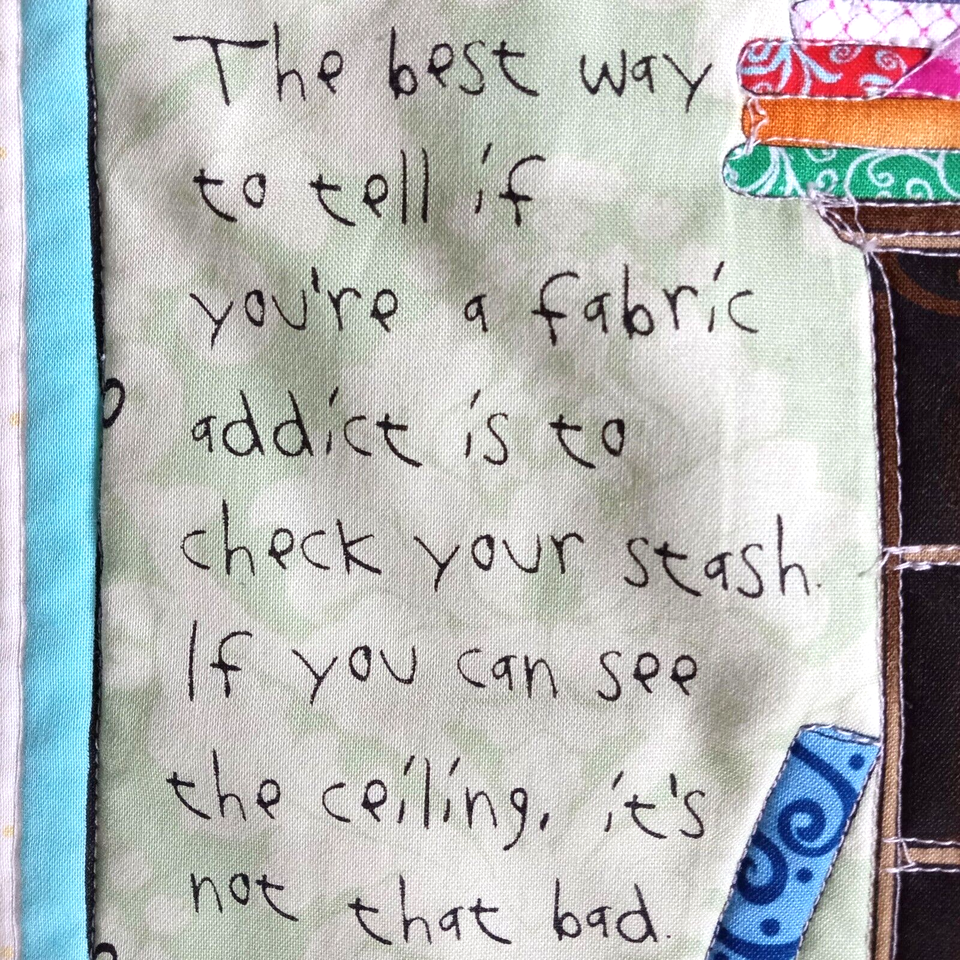 The best way
to tell if
you're a fabric
addict is to
check your stash.
If you can see
the ceiling, it's
not that bad.